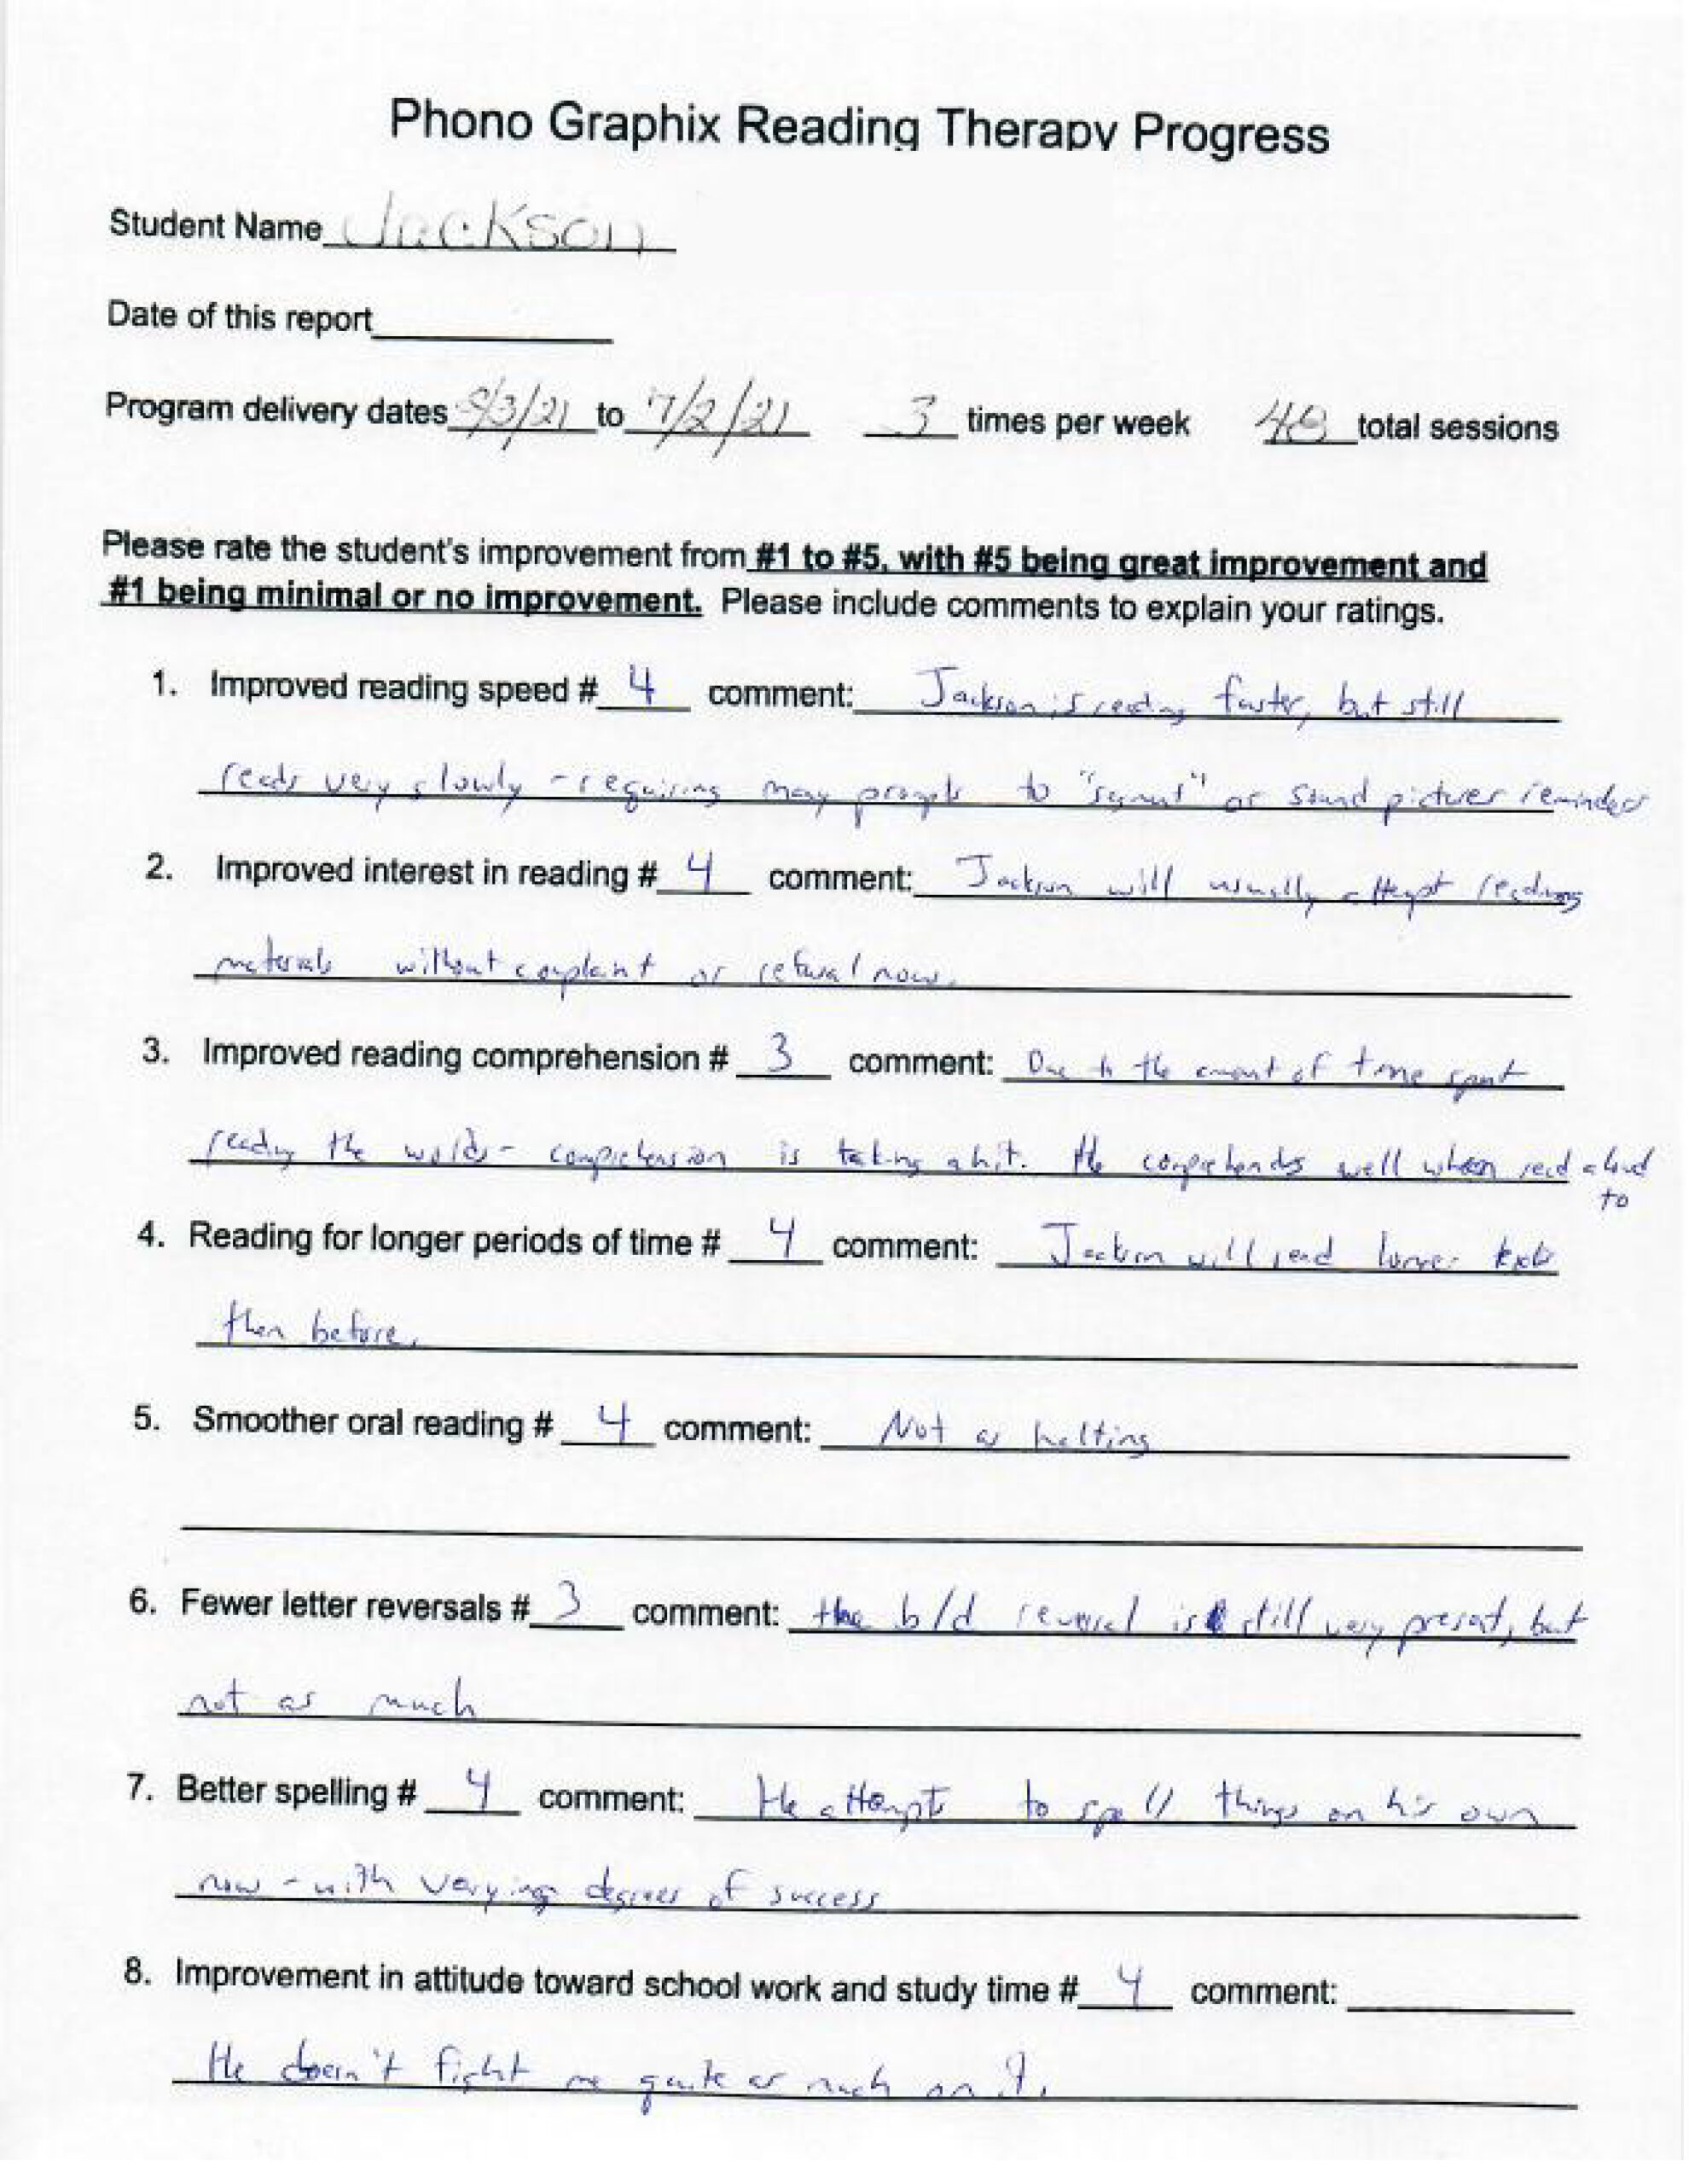 Phono Graphix Reading Therapy Progress
Student Name Jackson
Date of this report
Program delivery dates /3/21 to 7/2/21 3 times per week 48 total sessions
Please rate the student's improvement from #1 to #5, with #5 being great improvement and
#1 being minimal or no improvement. Please include comments to explain your ratings.
1. Improved reading speed # 4 comment: Jackson is reading faster, but still
reads very slowly - requiring many prompts to "segment" or sound picture reminders
2. Improved interest in reading # 4 comment: Jackson will usually attempt reading
materials without complaint or refusal now.
3. Improved reading comprehension # 3 comment: Due to the amount of time spent
reading the words - comprehension is taking a hit. He comprehends well when read aloud
to
4. Reading for longer periods of time # 4 comment: Jackson will read longer texts
then before.
5. Smoother oral reading # 4 comment: Not as halting
6. Fewer letter reversals # 3 comment: the b/d reversal is still very present, but
not as much
7. Better spelling # 4 comment: He attempts to spell things on his own
now - with varying degrees of success
8. Improvement in attitude toward school work and study time # 4 comment:
He doesn't fight me quite as much on it.